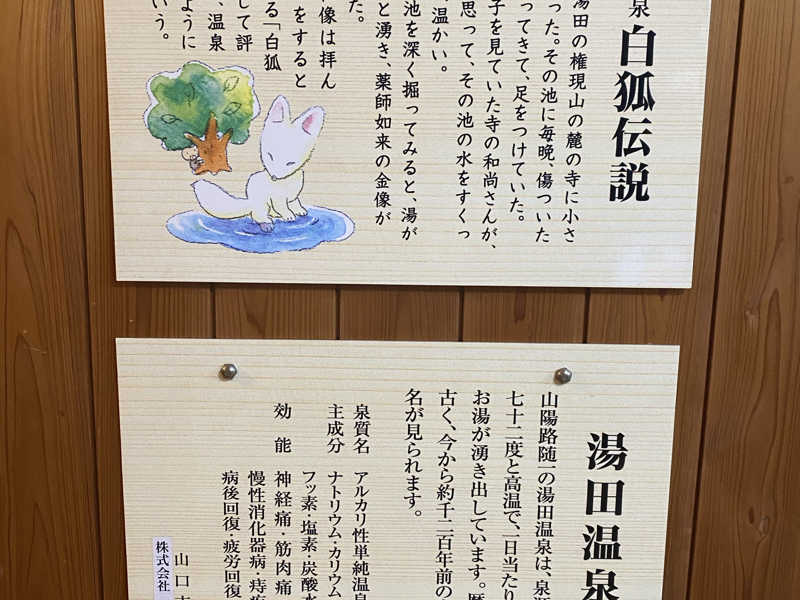 泉 白狐伝説
湯田の権現山の麓の寺に小さ
った。その池に毎晩、傷ついた
ってきて、足をつけていた。
子を見ていた寺の和尚さんが、
思って、その池の水をすくっ
温かい。
池を深く掘ってみると、湯が
と湧き、薬師如来の金像が
た。
像は拝ん
をすると
る「白狐
して評
、温泉
ように
いう。
湯田温泉
山陽路随一の湯田温泉は、泉
七十二度と高温で、一日当たり
お湯が湧き出しています。歴
古く、今から約千二百年前の
名が見られます。
泉質名 アルカリ性単純温泉
主成分 ナトリウム・カリウム
フッ素・塩素・炭酸水
効能 神経痛・筋肉痛
慢性消化器病・痔疾
病後回復・疲労回復
山口市
株式会社